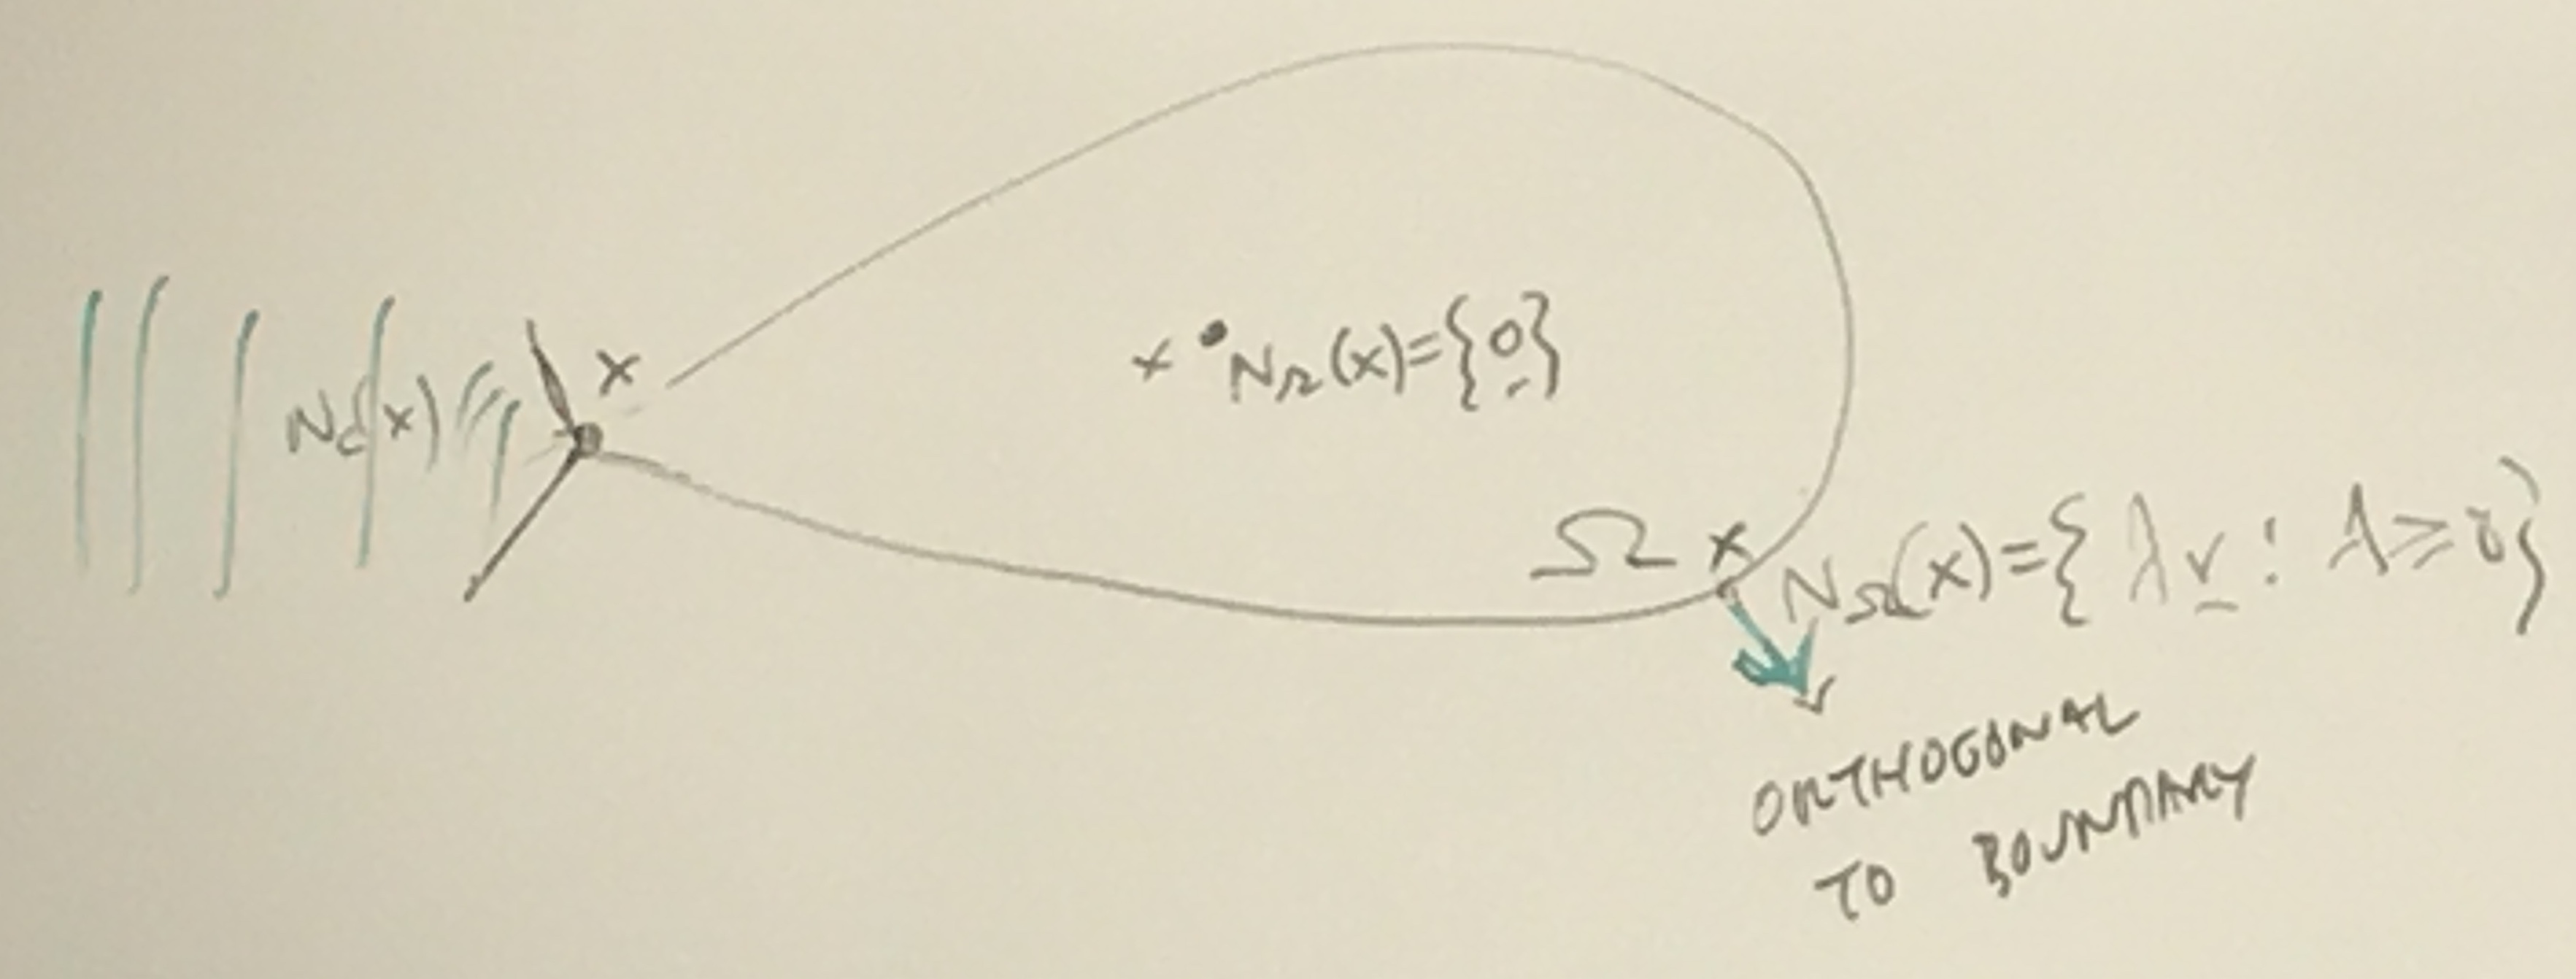 x
N_C(x)
x • N_Ω(x)={0}
Ω x
N_Ω(x)={λv : λ≥0}
v
ORTHOGONAL
TO BOUNDARY